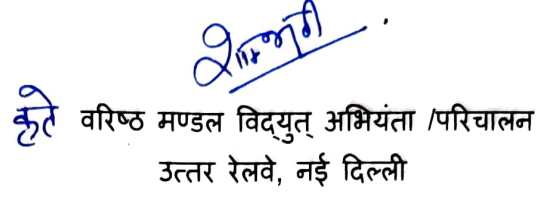 कृते वरिष्ठ मण्डल विद्युत् अभियंता /परिचालन
उत्तर रेलवे, नई दिल्ली